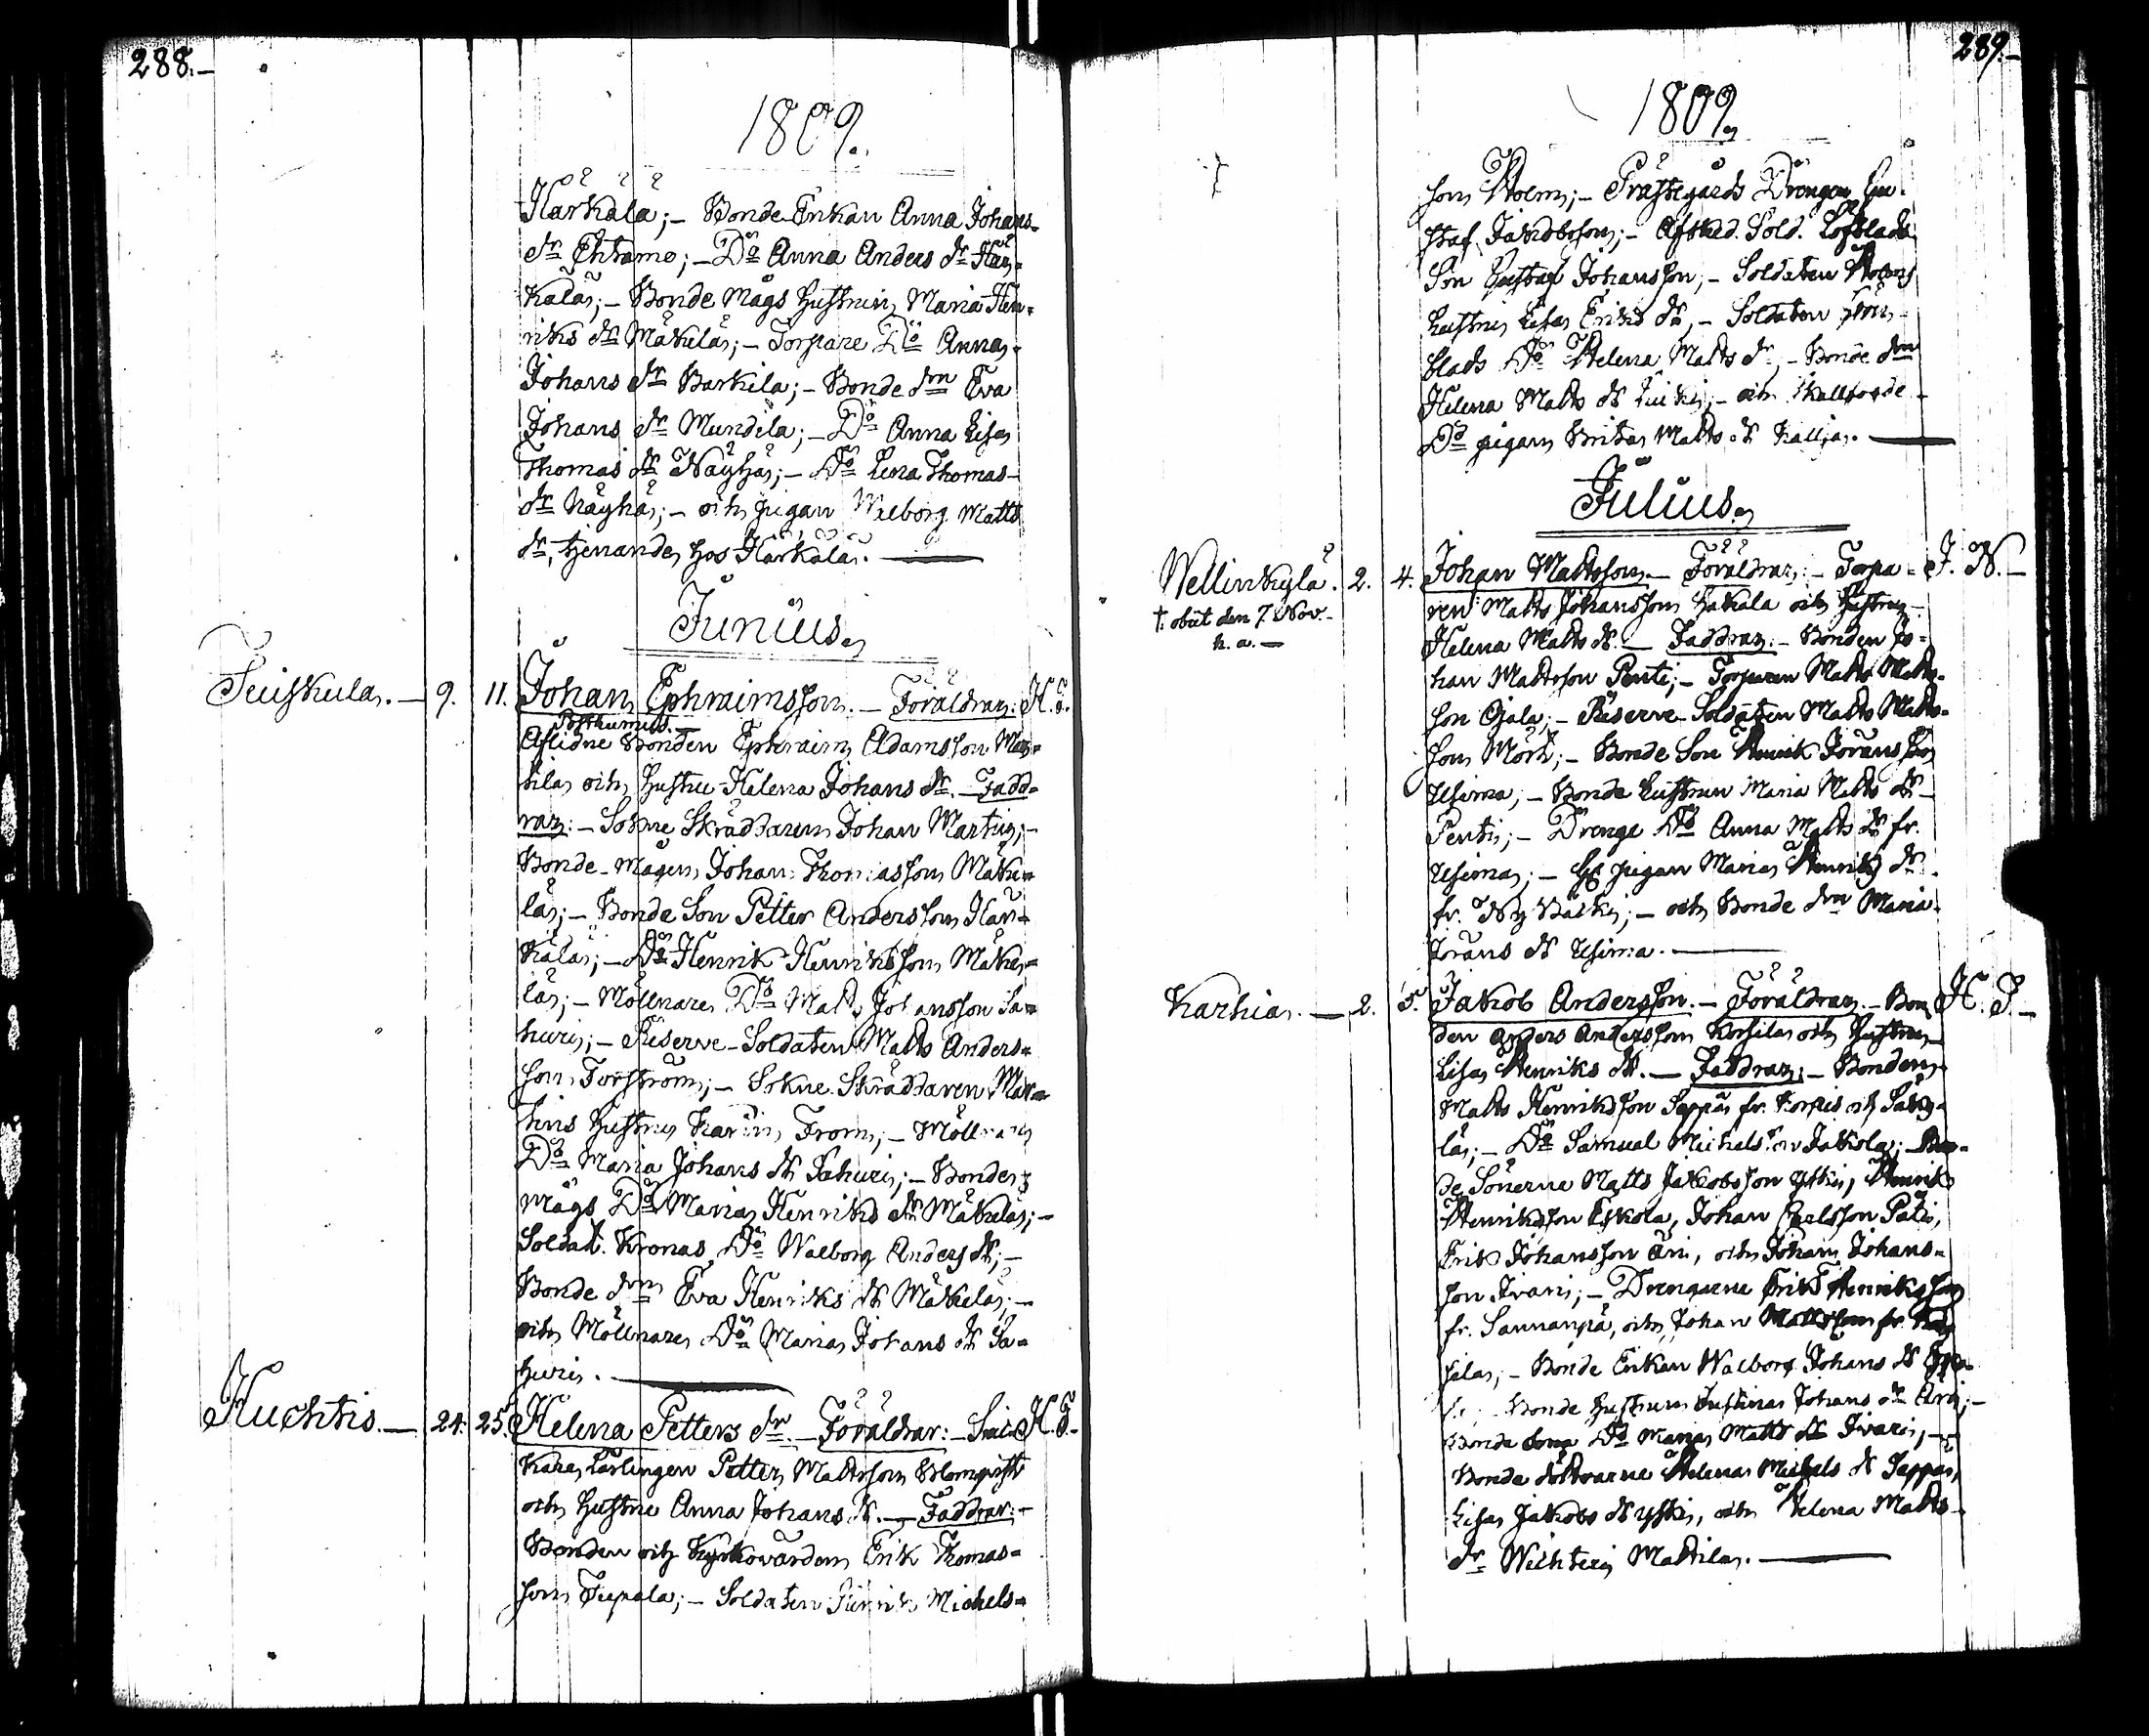 288.
1809.
Härkälä; – Bonde Enkan Anna Johans-
dr Ehtamo; – Do Anna Anders dr Här-
kälä; – Bonde Mågs Hustrun Maria Hen-
riks dr Mäkelä; – Torpare Do Anna
Johans dr Barkila; – Bonde drn Eva
Johans dr Mundila; – Do Anna Lisa
Thomas dr Näyhä; – Do Lena Thomas-
dr Näyhä; – och pigan Walborg Matts
dr, tjenande hos Härkälä.
Junius.
Tuiskula. – 9. 11. Johan Ephraimsson. – Föräldrar: H. T.
Posthumus.
Aflidne Bonden Ephraim Adamsson
och Hustru Helena Johans dr. – Fadd-
rar: – Sokne Skräddaren Johan Martin; –
Bonde-Mågen Johan Thomasson Mäke-
lä; – Bonde Son Petter Andersson Här-
kälä; – Do Henrik Henriksson Mäke-
lä; – Möllnare Do Matts Johansson Sa-
huri; – Reserve-Soldaten Matts Anders-
son Forsström; – Sokne Skräddaren Mar-
tins Hustru Karin From; – Möllnare
Do Maria Johans dr Sahuri; – Bonde
Mågs Do Maria Henriks dr Mäkelä; –
Soldat. Kronas Do Walborg Anders dr; –
Bonde drn Eva Henriks dr Mäkelä; –
och Möllnare Do Maria Johans dr Sa-
huri.
Huchtis. – 24. 25. Helena Petters dr. – Föräldrar: – H. T.
Petter Mattsson Blomqvist
och Hustru Anna Johans dr. – Faddrar: –
Bonden och Kyrkovärden Erik Thomas-
son Tupala; – Soldaten Henrik Michels-
289.
1809.
son Holm; – Prästegårds Drengen Gu-
staf Jakobsson; – Afsked. Sold. Löfblads
Son Gustaf Johansson; – Soldaten Holms
Hustru Lisa Eriks dr, – Soldaten
blads Do Helena Matts dr, – Bonde drn
Helena Matts dr – och
Do pigan Brita Matts dr Kallja.
Julius.
Wellinkylä. 2. 4. Johan Mattsson – Föräldrar: – Torpa- J. N. –
† obiit den 7. Nov.
h. a. –
ren Matts Johansson Hakala och Hustru
Helena Matts dr. – Faddrar: – Bonden Jo-
han Mattsson Penti; – Torparen Matts Matts-
son Ojala; – Reserve-Soldaten Matts Matts-
son Mörk; – Bonde Son Henrik Jöransson
Uhima; – Bonde Hustrun Maria Matts dr –
Penti; – Drenge Do Anna Matts dr fr.
Uhima; – pigan Maria Henriks dr
fr. Ny – och Bonde drn Maria
Jörans dr Uhima.
Karhia. – 2. 5. Jakob Andersson. – Föräldrar. – Bon- H. T. –
den Anders Andersson och Hustru
Lisa Henriks dr. – Faddrar: – Bonden
Matts Henriksson Seppä fr.
lä; – Do Samuel Michelsson Jakola; – Bon-
de Sönerne Matts Jakobsson Henrik
Henriksson Eskola, Johan Carlsson
Erik Johansson och Johan Johans-
son Ivari; – Drengarne Erik Henriksson
fr. Sannanpä, och Johan Mattsson fr.
– Bonde Enkan Walborg Johans dr
Bonde Hustrun Justina Johans dr –
Bonde Sona Do Maria Matts dr Ivari; –
Bonde döttrarne Helena Michels dr Seppä,
Lisa Jakobs dr och Helena Matts-
dr Wichteri Mattila.